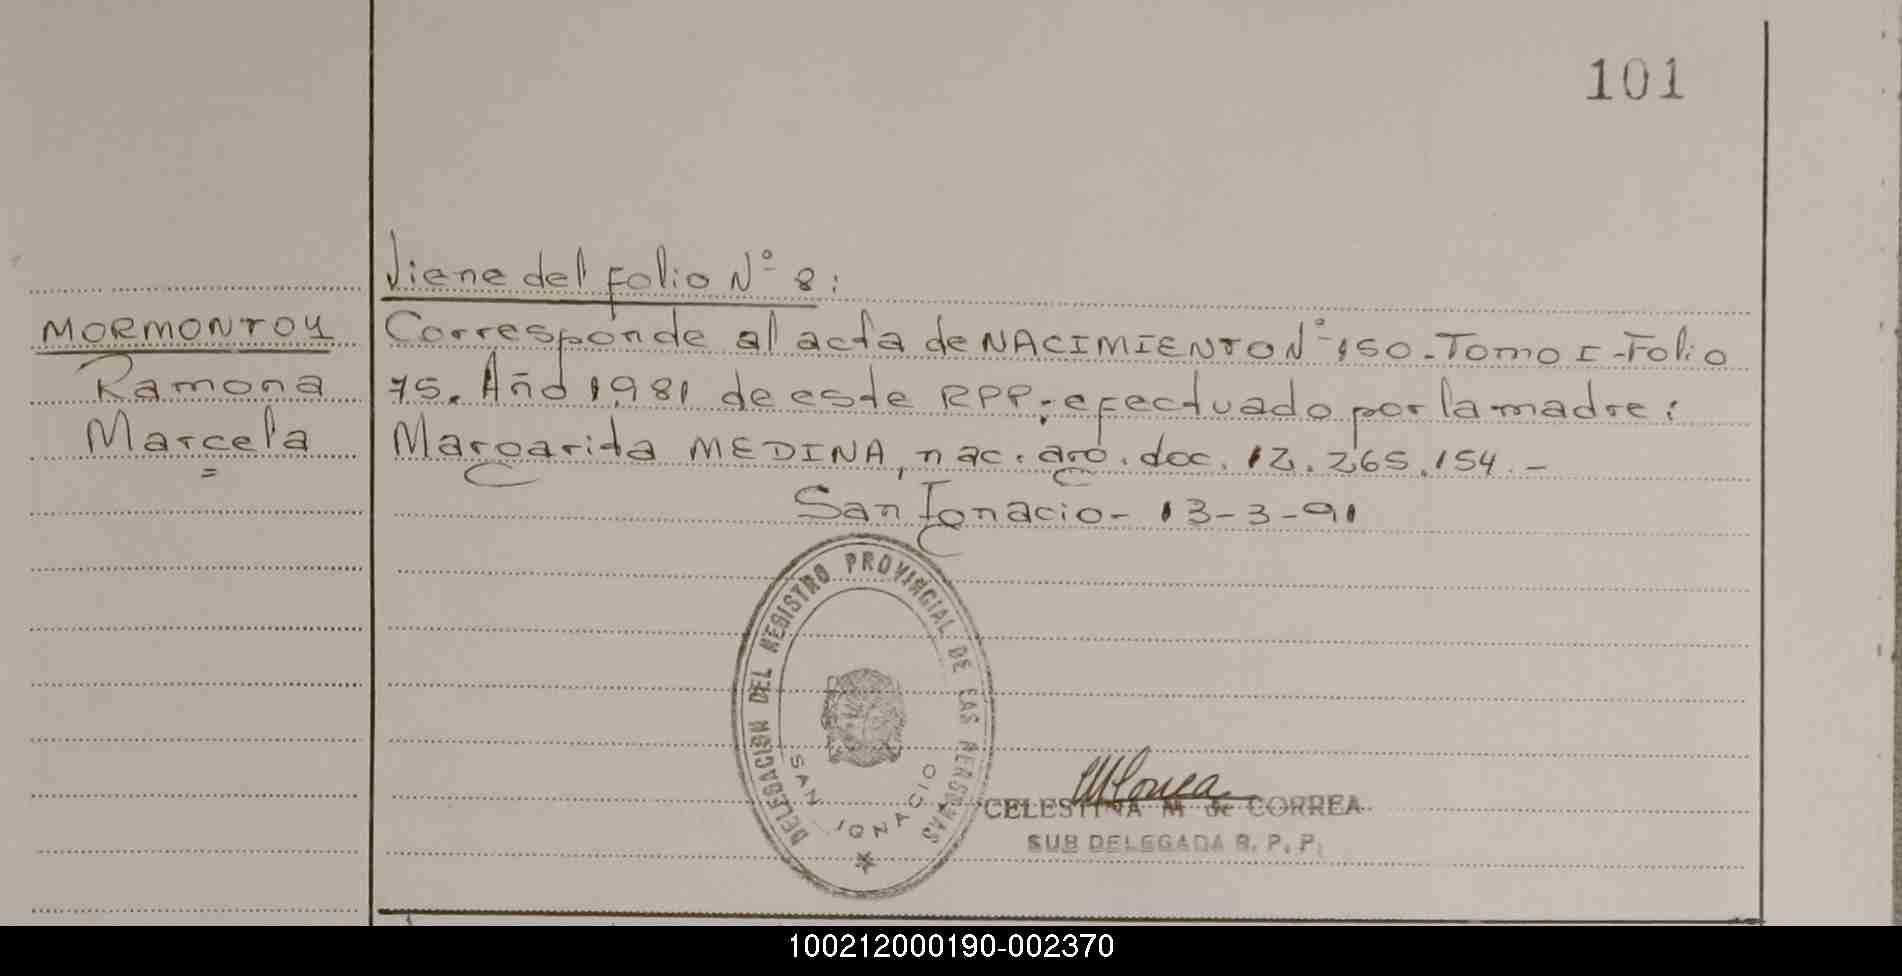 101
Viene del folio N° 8:
MORMONTOY
Ramona
Marcela
Corresponde al acta de NACIMIENTO N° 150 - Tomo I - Folio
75. Año 1981 de este RPP; efectuado por la madre:
Margarita MEDINA, nac. arg. doc. 12.265.154. -
San Ignacio - 13-3-91
DELEGACION DEL REGISTRO PROVINCIAL DE LAS PERSONAS
SAN IGNACIO
CELESTINA M de CORREA
SUB DELEGADA R. P. P.
100212000190-002370